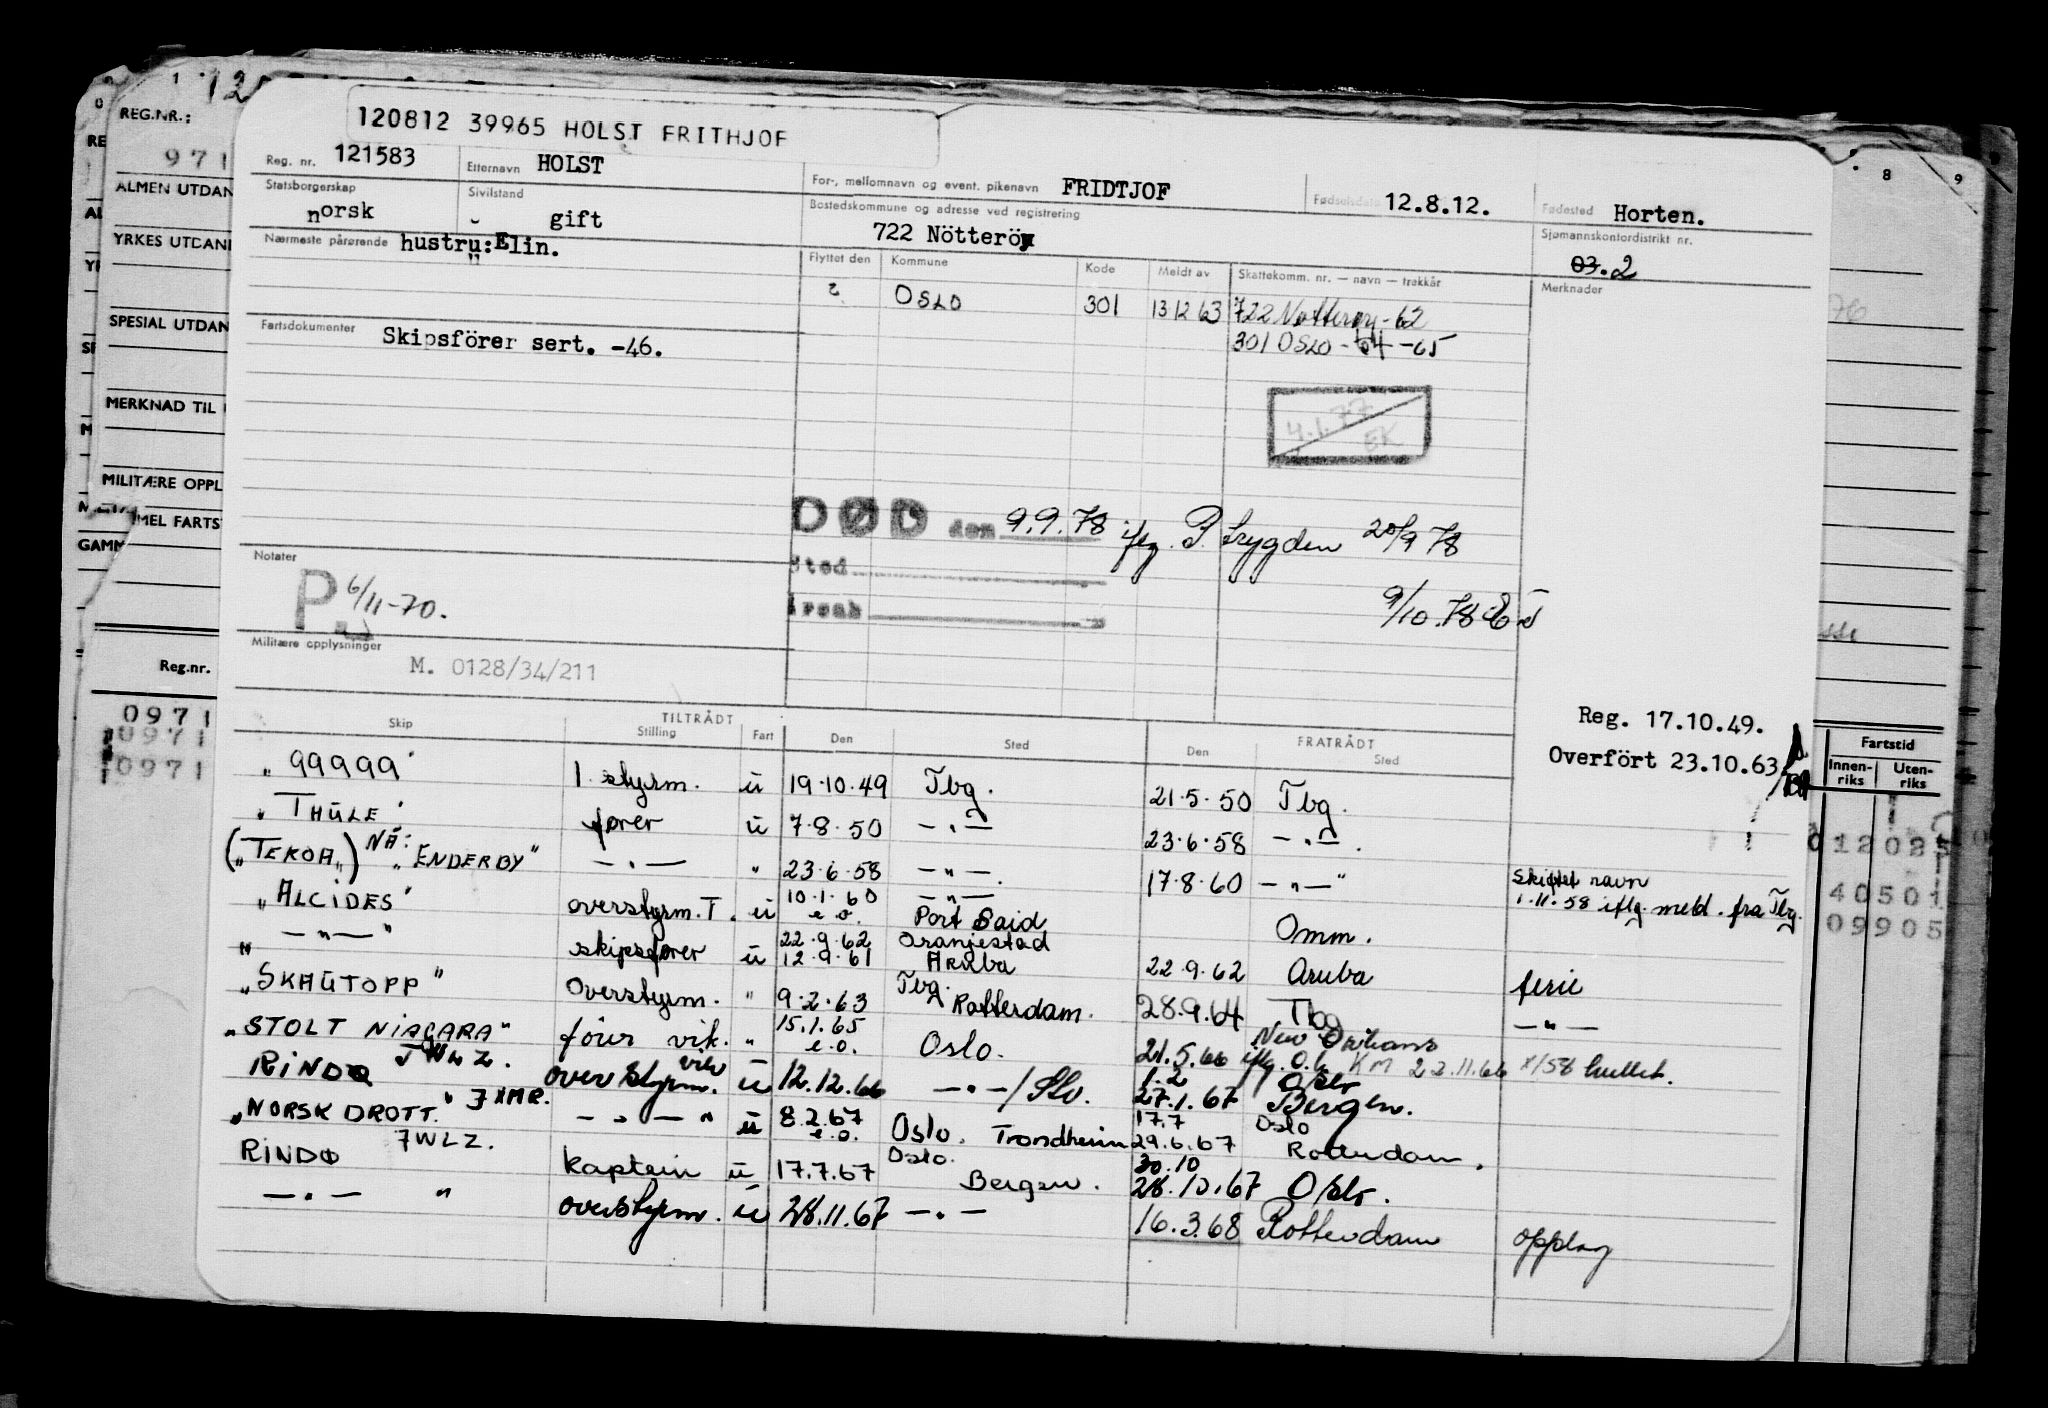 120812 39965 HOLST FRITHJOF
Reg. nr. 121583 Etternavn HOLST For-, mellomnavn og event. pikenavn FRIDTJOF Fødselsdato 12.8.12. Fødested Horten.
Statsborgerskap norsk Sivilstand gift Bostedskommune og adresse ved registrering 722 Nötteröy Sjømannskontordistrikt nr. 03.2
Nærmeste pårørende hustru: Elin. Flyttet den Kommune Kode Meldt av Skattekomm. nr. — navn — trekkår Merknader
? OSLO 301 13 12 63 722 Nøtterøy - 62
301 OSLO - 64 - 65
Fartsdokumenter Skipsförer sert. -46.
4.1.77
EK
DØD den 9.9.78 iflg. P. trygden 20/9 78
Sted
Årsak
9/10.78
Notater
P 6/11-70.
Militære opplysninger M. 0128/34/211
Reg. 17.10.49.
Overfört 23.10.63
Skip TILTRÅDT Stilling Fart Den Sted FRATRÅDT Den Sted
"99999" 1. styrm. u 19.10.49 Tbg. 21.5.50 Tbg.
"THULE" fører u 7.8.50 —"— 23.6.58 —"—.
("TEKOA") NÅ: "ENDERBY" —"— " 23.6.58 —"—. 17.8.60 —"— Skiftet navn 1.11.58 iflg. meld. fra Tbg.
"ALCIDES" overstyrm. T. u 10.1.60 e.o. —"— Port Said Omm.
"—"—" skipsfører u 22.9.62 12.9.61 Oranjestad Aruba 22.9.62 Aruba ferie
"SKAUTOPP" Overstyrm. " 9.2.63 Tbg. Rotterdam. 28.9.64 Tbg —"—
"STOLT NIAGARA" förer vik. " 15.1.65 e.o. Oslo. 21.5.66 New Orleans iflg. O.l. KM 22.11.66 x/58 hullet.
RINDØ JWLZ. overstyrm. vik u 12.12.66 —"—/Slv. 1.2 27.1.67 Oslo Bergen.
"NORSK DROTT." JXMR. —"—" u 8.2.67 e.o. Oslo. Trondheim 17.7 29.6.67 Oslo Rotterdam.
RINDØ JWLZ. kaptein u 17.7.67 Oslo. Bergen. 30.10 28.10.67 Oslo.
—"—" overstyrm. u 28.11.67 —"— 16.3.68 Rotterdam opplag
REG.NR.:
971
ALMEN UTDAN
YRKES UTDANI
SPESIAL UTDAN
MERKNAD TIL
MILITÆRE OPPL
GAMMEL FARTS
GAMM
Reg.nr.
0971
0971
0971
8 9
76
Fartstid
Innen-riks Uten-riks
40501
09905